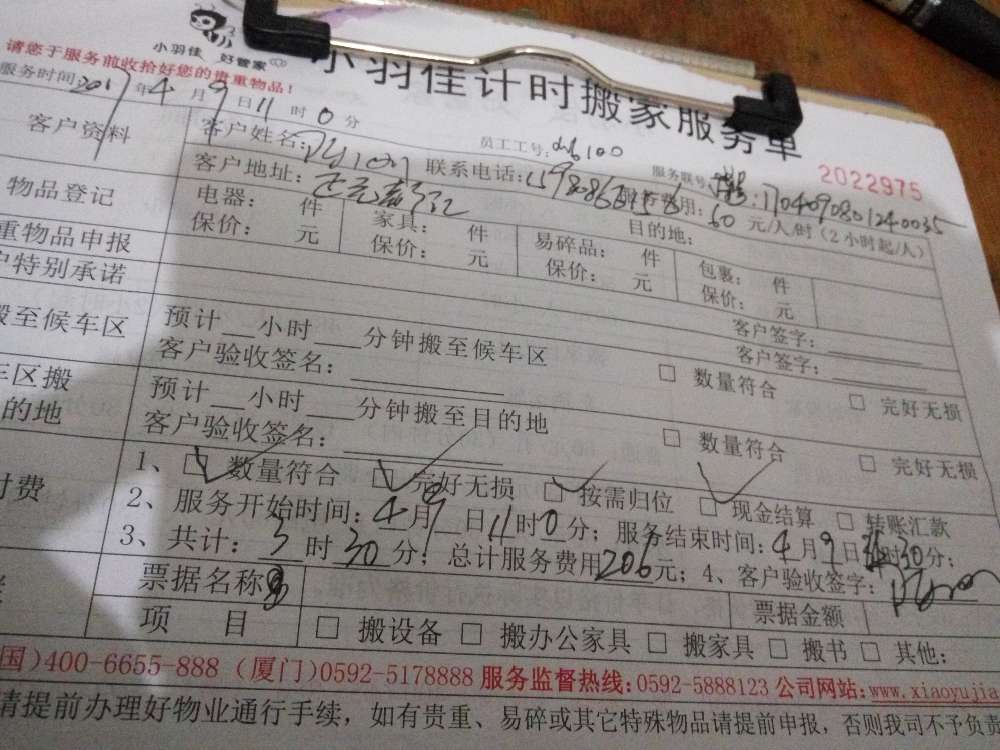 小羽佳 好管家
小羽佳计时搬家服务单
请您于服务前收拾好您的贵重物品!
服务时间:2017年4月9日11时0分
员工工号:
服务联号
2022975
客户资料
客户姓名:
联系电话:
费用:60元/人/时(2小时起/人)
客户地址:
目的地:
物品登记
电器: 件
家具: 件
易碎品: 件
包裹: 件
重物品申报
保价: 元
保价: 元
保价: 元
保价: 元
户特别承诺
客户签字:
客户签字:
搬至候车区
预计 小时 分钟搬至候车区
客户验收签名:
数量符合
完好无损
车区搬
的地
预计 小时 分钟搬至目的地
客户验收签名:
数量符合
完好无损
付费
1、数量符合 完好无损 按需归位 现金结算 转账汇款
2、服务开始时间:4月9日11时0分;服务结束时间:4月9日 时30分;
3、共计:3时30分;总计服务费用206元;4、客户验收签字:
票据名称
票据金额
项 目
搬设备 搬办公家具 搬家具 搬书 其他:
国)400-6655-888 (厦门)0592-5178888 服务监督热线:0592-5888123 公司网站:www.xiaoyujia
请提前办理好物业通行手续,如有贵重、易碎或其它特殊物品请提前申报,否则我司不予负责